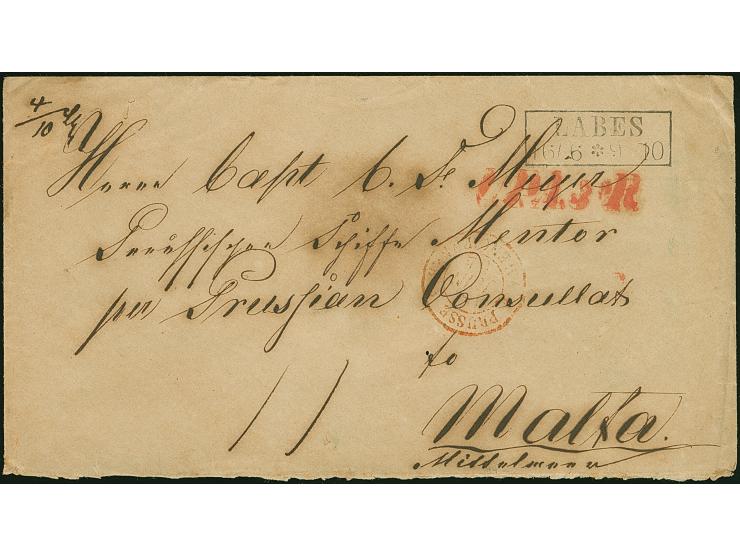 4/10
LABES
16/6 * 9
Herrn Capt C. F. Meyer
R
Preußischen Schiffe Mentor
per Prussian Consullat
PRUSSE
to
Malta.
Mittelmeer